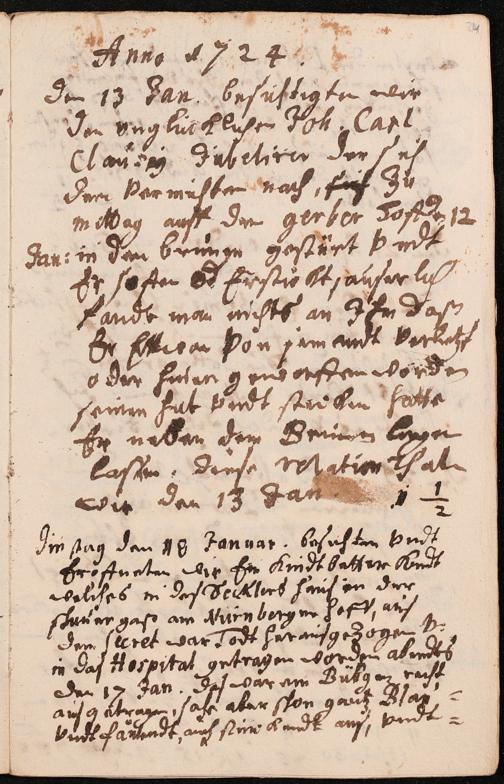 Anno 1724.
den 13 Jan. besichtigten wir
den unglücklichen Joh. Carl
Clausig Jubelirer der sich
dem vermuthen nach, zu
mittag auff den gerber
Jan: in den brunnen gestürt undt
Er soffen od Erstickt, auserlich
fande man nichts an Ihm das
Er von jemandt verletzt
oder hinein geworffen worden
seinen hut undt stecken hatte
Er neben dem Brunnen liegen
lassen. diese relation thaten
wir den 13 Jan 1/2
Dinstag den 18 Januar. besichten undt
eröffneten wir Ein Kindtbetter Kindt
welches in des Secklers haus in der
am Nürnberger hoff, aus
dem secret war Todt herausgezogen u.
in das Hospital getragen worden abendts
den 17 Jan. das war ein Bübgen recht
ausgetragen, sahe aber schon gantz Blau =
undt, undt =